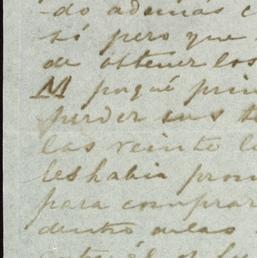 -do además c
sé pero que
de obtener los
M pagué prim
perder sus t
las veinte l
les habia prom
para comprar
dentro de las